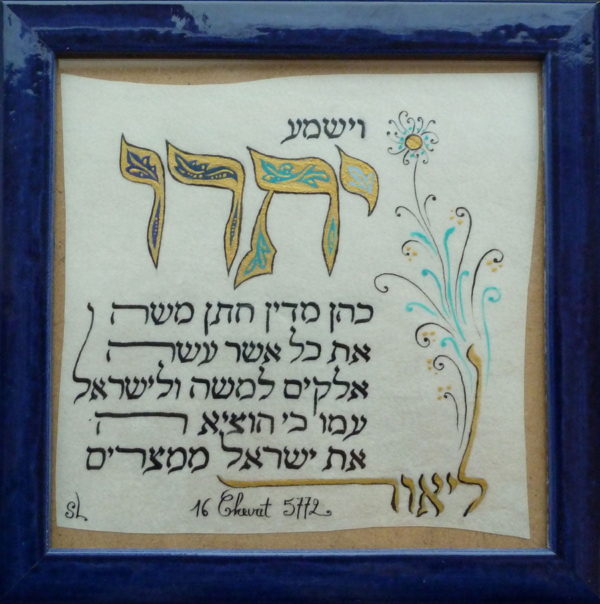 וישמע
יתרו
כהן מדין חתן משה
את כל אשר עשה
אלקים למשה ולישראל
עמו כי הוציא ה
את ישראל ממצרים
ליאור
16 Chevat 5772
SL